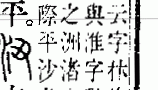 云字林
與淮字
之洲渚
際平沙
平。